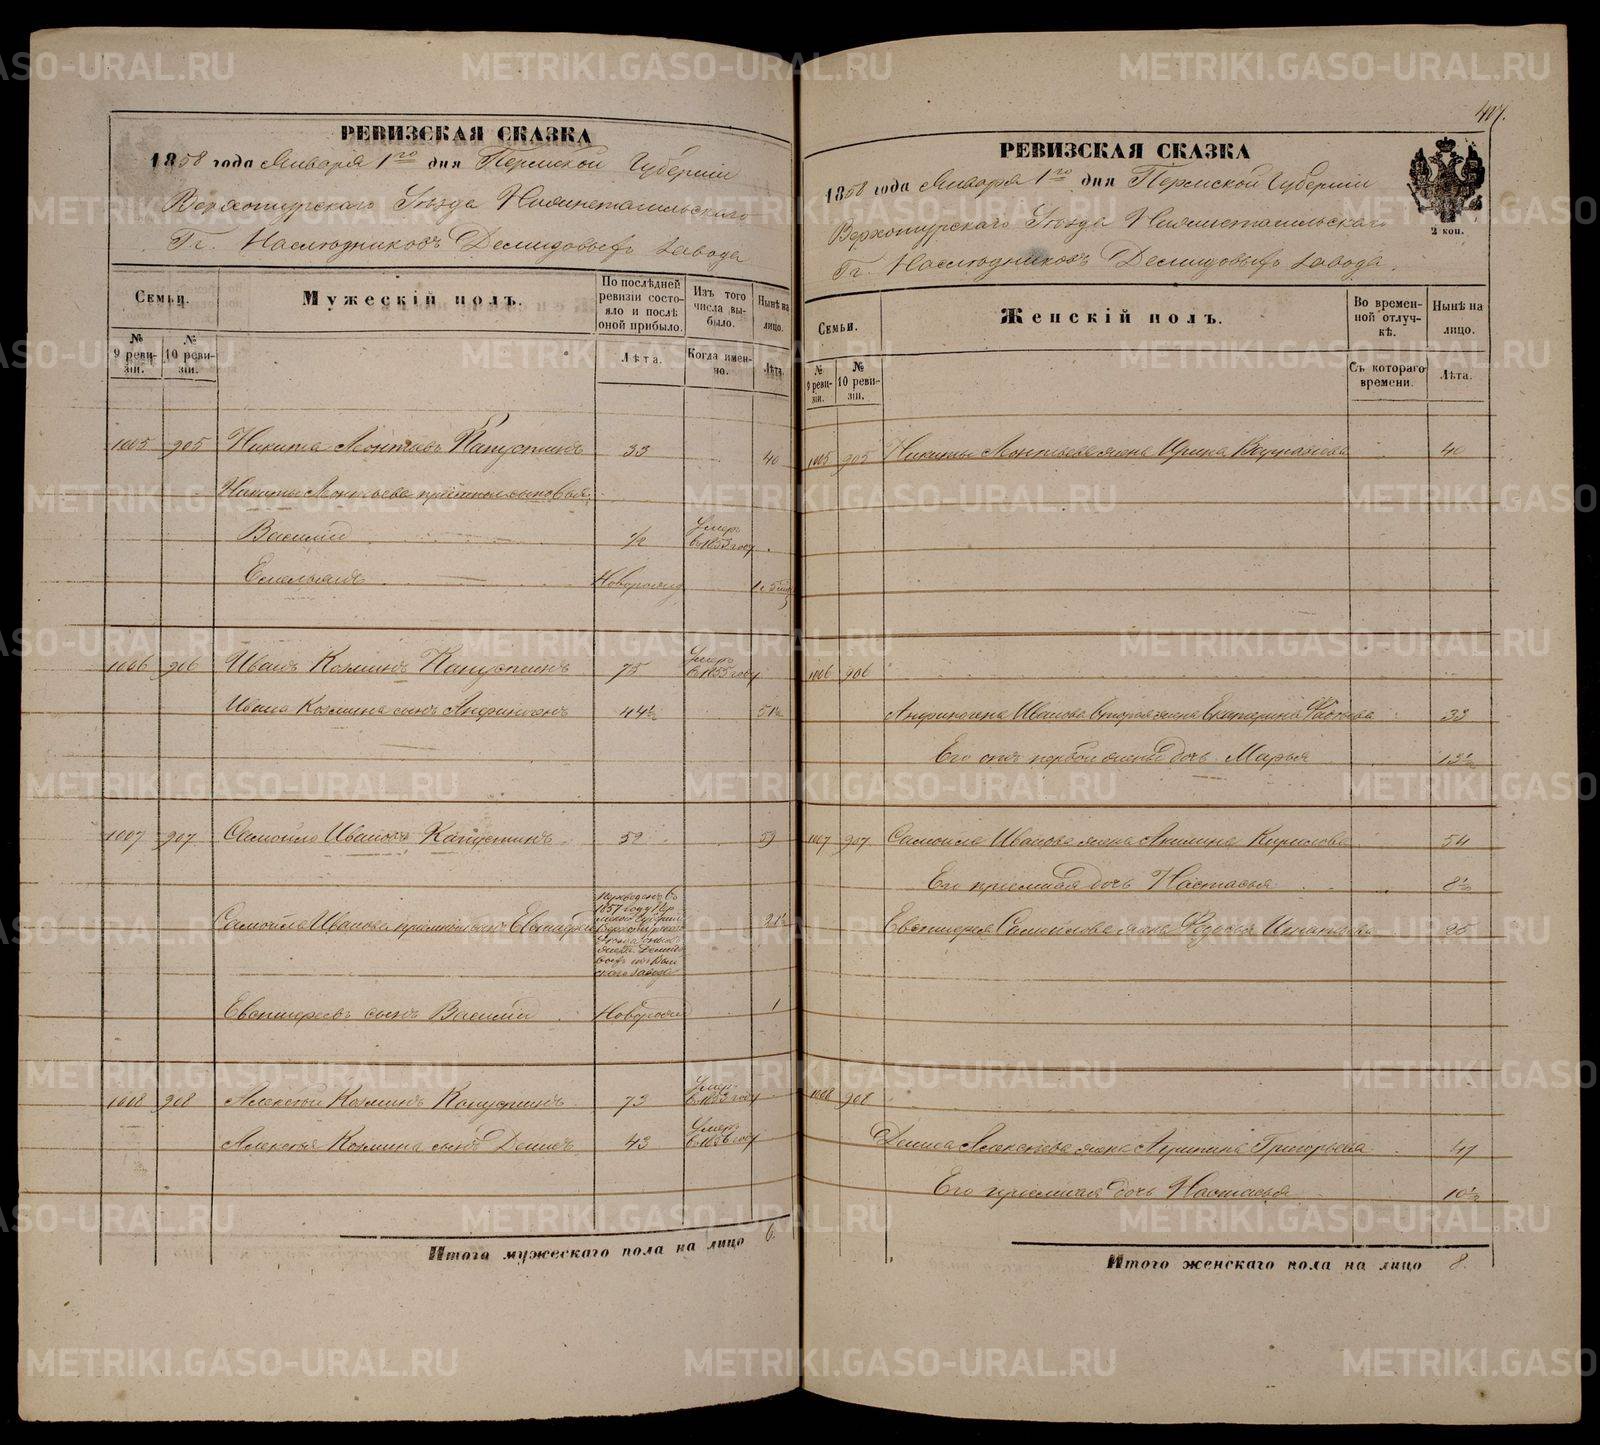 407.
РЕВИЗСКАЯ СКАЗКА
1858 года Января 1го дня Пермской Губернiи
Верхотурскаго Уѣзда Нижнетагильскаго
Гг. Наслѣдниковъ Демидовыхъ завода
Семьи.
№ 9 ревизiи.
№ 10 ревизiи.
Мужескiй полъ.
По послѣдней ревизiи состояло и послѣ оной прибыло.
Лѣта.
Изъ того числа выбыло.
Когда именно.
Нынѣ на лицо.
Лѣта.
1005 905 Никита Леонтьевъ Капустинъ 33 40
Никиты Леонтьева сыновья:
Василiй 1/2 Умеръ въ 1853 году
Емельянъ Новорожд
1006 906 Иванъ Козминъ Капустинъ 75 Умеръ въ 1855 году
Ивана Козмина сынъ Андриногенъ 44 1/2 51 1/2
1007 907 Самойло Ивановъ Капустинъ 52 59
Самойла Иванова 21 1/2
Переведенъ въ 1857 году Пермской Губернiи Верхотурскаго Уѣзда
завода
сынъ Василiй Новорожд 1
1008 908 Алексѣй Козминъ Капустинъ 73 Умеръ въ 1853 году
Алексѣя Козмина сынъ Денисъ 43 Умеръ въ 1856 году
Итого мужескаго пола на лицо 6.
РЕВИЗСКАЯ СКАЗКА
1858 года Января 1го дня Пермской Губернiи
Верхотурскаго Уѣзда Нижнетагильскаго
Гг. Наслѣдниковъ Демидовыхъ завода.
2 коп.
Семьи.
№ 9 ревизiи.
№ 10 ревизiи.
Женскiй полъ.
Во временной отлучкѣ.
Съ котораго времени.
Нынѣ на лицо.
Лѣта.
1005 905 Никиты Леонтьева жена Ирина 40
1006 906
Андриногена Иванова вторая жена Екатерина 33
Его отъ первой жены дочь Марья 13 1/2
1007 907 Самойла Иванова жена Акилина Кирилова 54
Его прiемная дочь Настасья 8 1/2
Самойлова жена Федосья Игнатьева 25
1008 908
Дениса Алексѣева жена Агрипина Григорьева 47
Его прiемная дочь Настасья 10 1/2
Итого женскаго пола на лицо 8.
METRIKI.GASO-URAL.RU